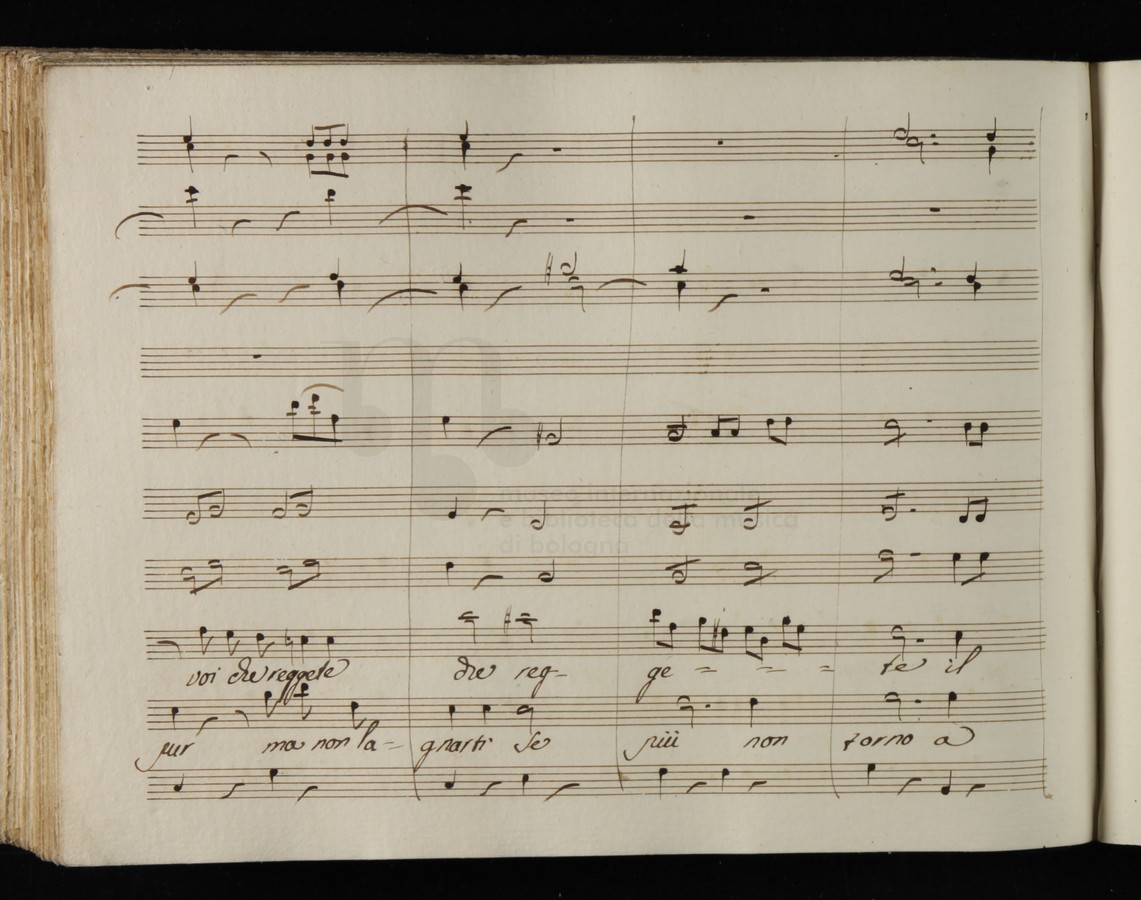 museo internazionale
e biblioteca della musica
di bologna
voi che reggete che reg- ge - - - te il
pur ma non la- gnarti se più non torno a